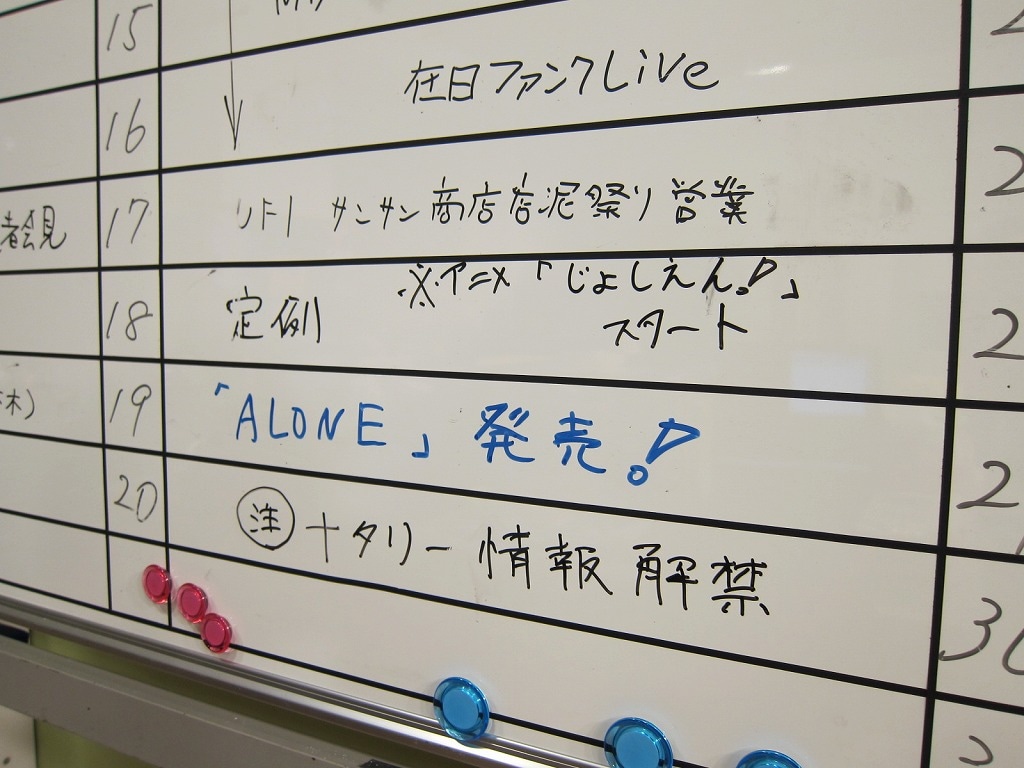 15
在日ファンクLive
16
者会見 17 リハ サンサン商店店泥祭り営業
※アニメ「じょしえん!」
18 定例
スタート
木) 19 「ALONE」発売!
20 注 ナタリー情報解禁